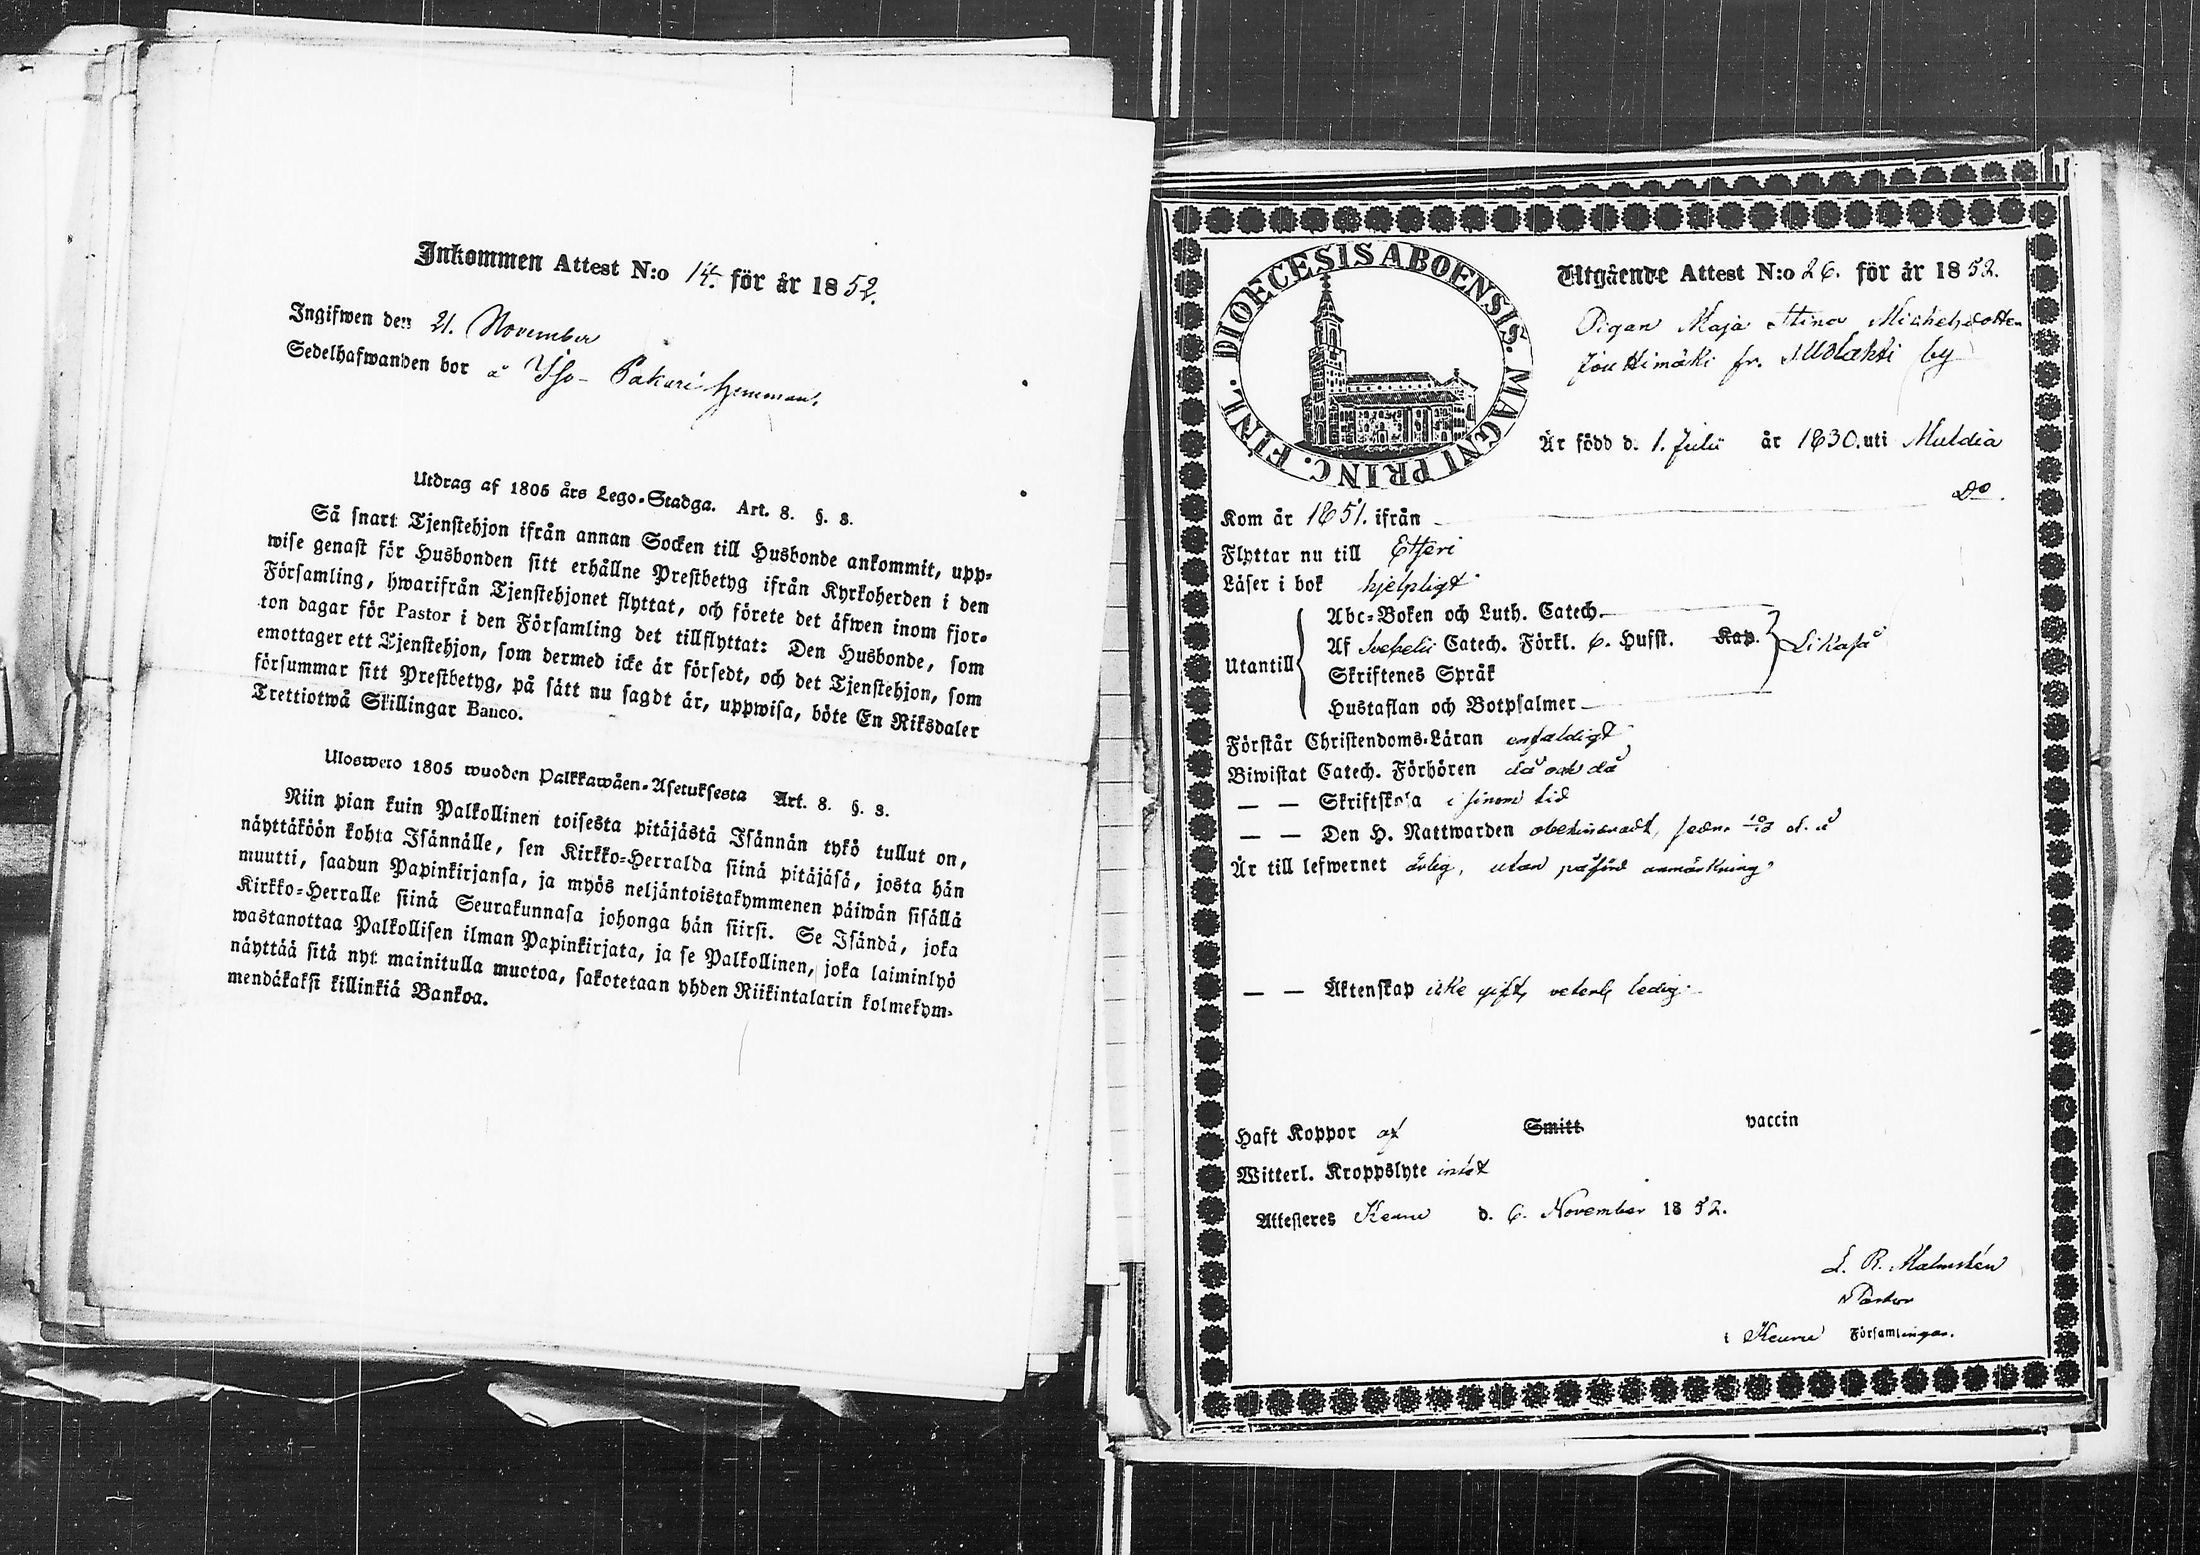 Inkommen Attest N:o 14. för år 1852.
Ingifwen den 21. November
Sedelhafwanden bor å Iso-Pakari hemman.
Utdrag af 1805 års Lego-Stadga. Art. 8. §. 8.
Så snart Tjenstehjon ifrån annan Socken till Husbonde ankommit, upp-
wise genast för Husbonden sitt erhållne Prestbetyg ifrån Kyrkoherden i den
Församling, hwarifrån Tjenstehjonet flyttat, och förete det äfwen inom fjor-
ton dagar för Pastor i den Församling det tillflyttat: Den Husbonde, som
emottager ett Tjenstehjon, som dermed icke är försedt, och det Tjenstehjon, som
försummar sitt Prestbetyg, på sätt nu sagdt är, uppwisa, böte En Riksdaler
Trettiotwå Skillingar Banco.
Uloswето 1805 wuoden Palkkawäen-Asetuksesta Art. 8. §. 8.
Niin pian kuin Palkollinen toisesta pitäjästä Isännän tykö tullut on,
näyttäköön kohta Isännälle, sen Kirkko-Herralda siinä pitäjäsä, josta hän
muutti, saadun Papinkirjansa, ja myös neljäntoistakymmenen päiwän sisällä
Kirkko-Herralle siinä Seurakunnasa johonga hän siirsi. Se Isändä, joka
wastanottaa Palkollisen ilman Papinkirjata, ja se Palkollinen, joka laiminlyö
näyttää sitä nyt mainitulla muotoa, sakotetaan yhden Riikintalarin kolmekym-
mendäkaksi killinkiä Bankoa.
DIOECESIS ABOENSIS. MAGNI PRINC. FINL.
Utgående Attest N:o 26. för år 1852.
Pigan Maja Stina Michelsdotter
Jouttimäki fr. by
Är född d. 1. Julii år 1830. uti Multia
Kom år 1851. ifrån Do.
Flyttar nu till Etseri
Läser i bok hjelpligt
Utantill
Abc-Boken och Luth. Catech.
Af Svebelii Catech. Förkl. 6. Hufst. Kap. Likaså
Skriftenes Språk
Hustaflan och Botpsalmer
Förstår Christendoms-Läran enfaldigt
Biwistat Catech. Förhören då och då
— — Skriftskola i sinom tid
— — Den H. Nattwarden obehindradt, sedn. d. å
Är till lefwernet ärlig, utan påförd anmärkning.
— — Äktenskap icke gift, veterl. ledig.
Haft Koppor af Smitt vaccin
Witterl. Kroppslyte intet
Attesteres Keuru d. 6. November 1852.
L. R. Malmstén
v Pastor
i Keuru Församlingar.